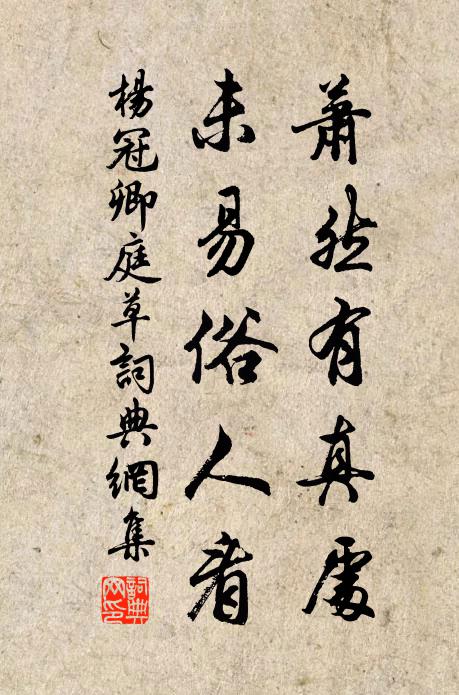 蕭然有真處
未易俗人看
楊冠卿庭草詞典網集
詞典網印